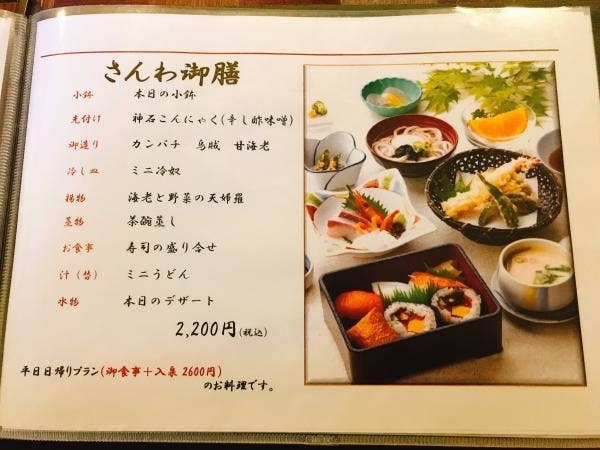 さんわ御膳
小鉢 本日の小鉢
先付け 神石こんにゃく(辛し酢味噌)
御造り カンパチ 烏賊 甘海老
冷し皿 ミニ冷奴
揚物 海老と野菜の天婦羅
蒸物 茶碗蒸し
お食事 寿司の盛り合せ
汁(替) ミニうどん
水物 本日のデザート
2,200円(税込)
平日日帰りプラン(御食事+入泉2600円)
のお料理です。